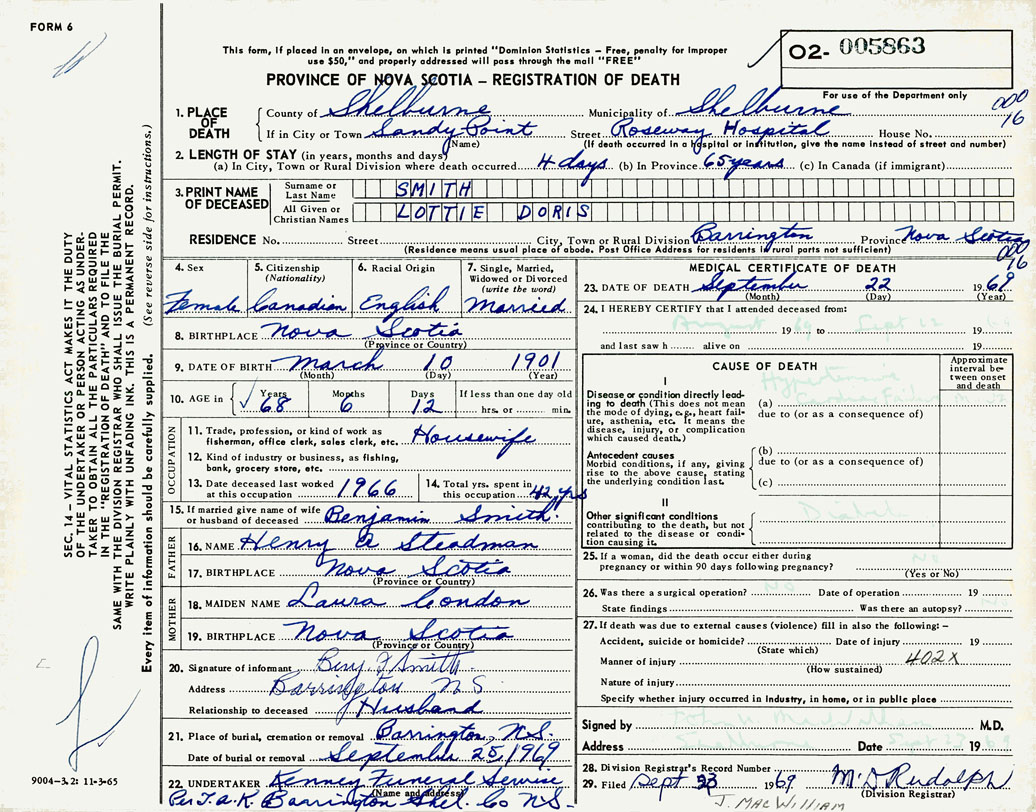 FORM 6
This form, if placed in an envelope, on which is printed "Dominion Statistics – Free, penalty for improper
use $50," and properly addressed will pass through the mail "FREE"
PROVINCE OF NOVA SCOTIA – REGISTRATION OF DEATH
02- 005863
For use of the Department only
000
16
1. PLACE OF DEATH
County of Shelburne Municipality of Shelburne
If in City or Town Sandy Point Street Roseway Hospital House No.
(Name) (If death occurred in a hospital or institution, give the name instead of street and number)
2. LENGTH OF STAY (in years, months and days)
(a) In City, Town or Rural Division where death occurred 4 days (b) In Province 65 years (c) In Canada (if immigrant)
3. PRINT NAME OF DECEASED
Surname or Last Name SMITH
All Given or Christian Names LOTTIE DORIS
RESIDENCE No. Street City, Town or Rural Division Barrington Province Nova Scotia
(Residence means usual place of abode. Post Office Address for residents in rural parts not sufficient)
000
16
4. Sex Female
5. Citizenship (Nationality) Canadian
6. Racial Origin English
7. Single, Married, Widowed or Divorced (write the word) Married
8. BIRTHPLACE Nova Scotia
(Province or Country)
9. DATE OF BIRTH March 10 1901
(Month) (Day) (Year)
10. AGE in Years 68 Months 6 Days 12 If less than one day old hrs. or min.
OCCUPATION
11. Trade, profession, or kind of work as fisherman, office clerk, sales clerk, etc. Housewife
12. Kind of industry or business, as fishing, bank, grocery store, etc.
13. Date deceased last worked at this occupation 1966
14. Total yrs. spent in this occupation 42 yrs
15. If married give name of wife or husband of deceased Benjamin Smith.
FATHER
16. NAME Henry A Steadman
17. BIRTHPLACE Nova Scotia
(Province or Country)
MOTHER
18. MAIDEN NAME Laura Condon
19. BIRTHPLACE Nova Scotia
(Province or Country)
20. Signature of informant Benj J Smith
Address Barrington N S
Relationship to deceased Husband
21. Place of burial, cremation or removal Barrington, N.S.
Date of burial or removal September 25, 1969
22. UNDERTAKER Kenney Funeral Service
(Name and address)
Per J. A. K. Barrington Shel. Co N.S.
MEDICAL CERTIFICATE OF DEATH
23. DATE OF DEATH September 22 1969
(Month) (Day) (Year)
24. I HEREBY CERTIFY that I attended deceased from:
August 69 to Sept 22 19
and last saw h alive on 19
CAUSE OF DEATH
Approximate interval between onset and death
I
Disease or condition directly leading to death (This does not mean the mode of dying, e.g., heart failure, asthenia, etc. It means the disease, injury, or complication which caused death.)
(a) Hypertensive
due to (or as a consequence of)
Antecedent causes
Morbid conditions, if any, giving rise to the above cause, stating the underlying condition last.
(b)
due to (or as a consequence of)
(c)
II
Other significant conditions contributing to the death, but not related to the disease or condition causing it.
25. If a woman, did the death occur either during
pregnancy or within 90 days following pregnancy? No
(Yes or No)
26. Was there a surgical operation? No Date of operation 19
State findings Was there an autopsy? No
27. If death was due to external causes (violence) fill in also the following: –
Accident, suicide or homicide? Date of injury 19
(State which)
Manner of injury 402X
(How sustained)
Nature of injury
Specify whether injury occurred in industry, in home, or in public place
Signed by M.D.
Address Shelburne Date Sept 23 1969
28. Division Registrar's Record Number
29. Filed Sept 23 1969 M. D Rudolph
(Division Registrar)
J. MACWILLIAM
SEC. 14 – VITAL STATISTICS ACT MAKES IT THE DUTY
OF THE UNDERTAKER OR PERSON ACTING AS UNDER-
TAKER TO OBTAIN ALL THE PARTICULARS REQUIRED
IN THE "REGISTRATION OF DEATH" AND TO FILE THE
SAME WITH THE DIVISION REGISTRAR WHO SHALL ISSUE THE BURIAL PERMIT.
WRITE PLAINLY WITH UNFADING INK. THIS IS A PERMANENT RECORD.
Every item of information should be carefully supplied. (See reverse side for instructions.)
9004–3.2: 11-3-65